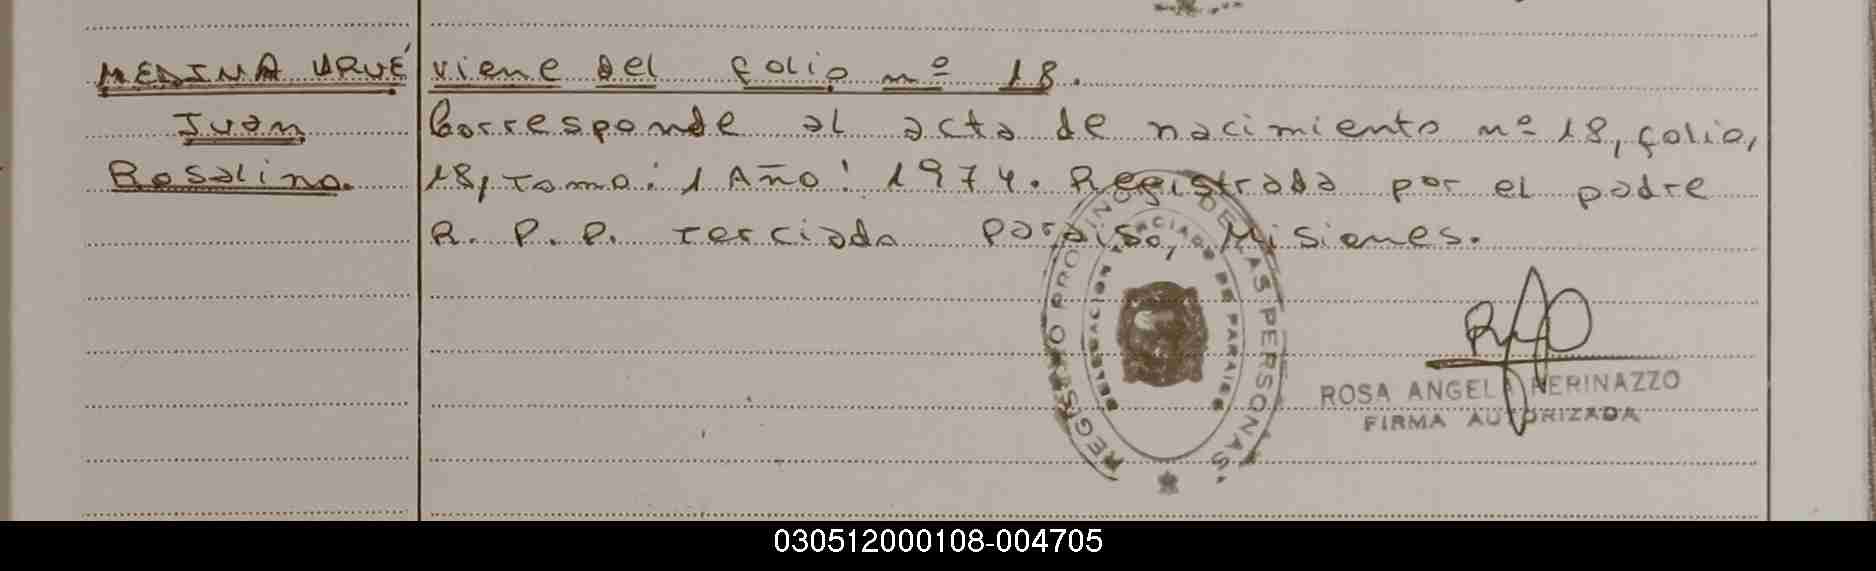 MEDINA URUÉ viene del folio nº 18.
Juan Corresponde al acta de nacimiento nº 18, folio,
Rosalino. 18, Tomo: 1 Año: 1974. Registrada por el padre
R. P. P. Terciada Paraiso, Misiones.
REGISTRO PROVINC DE LAS PERSONAS
DELEGACION TERCIADO DE PARAISO
ROSA ANGELA PERINAZZO
FIRMA AUTORIZADA
030512000108-004705